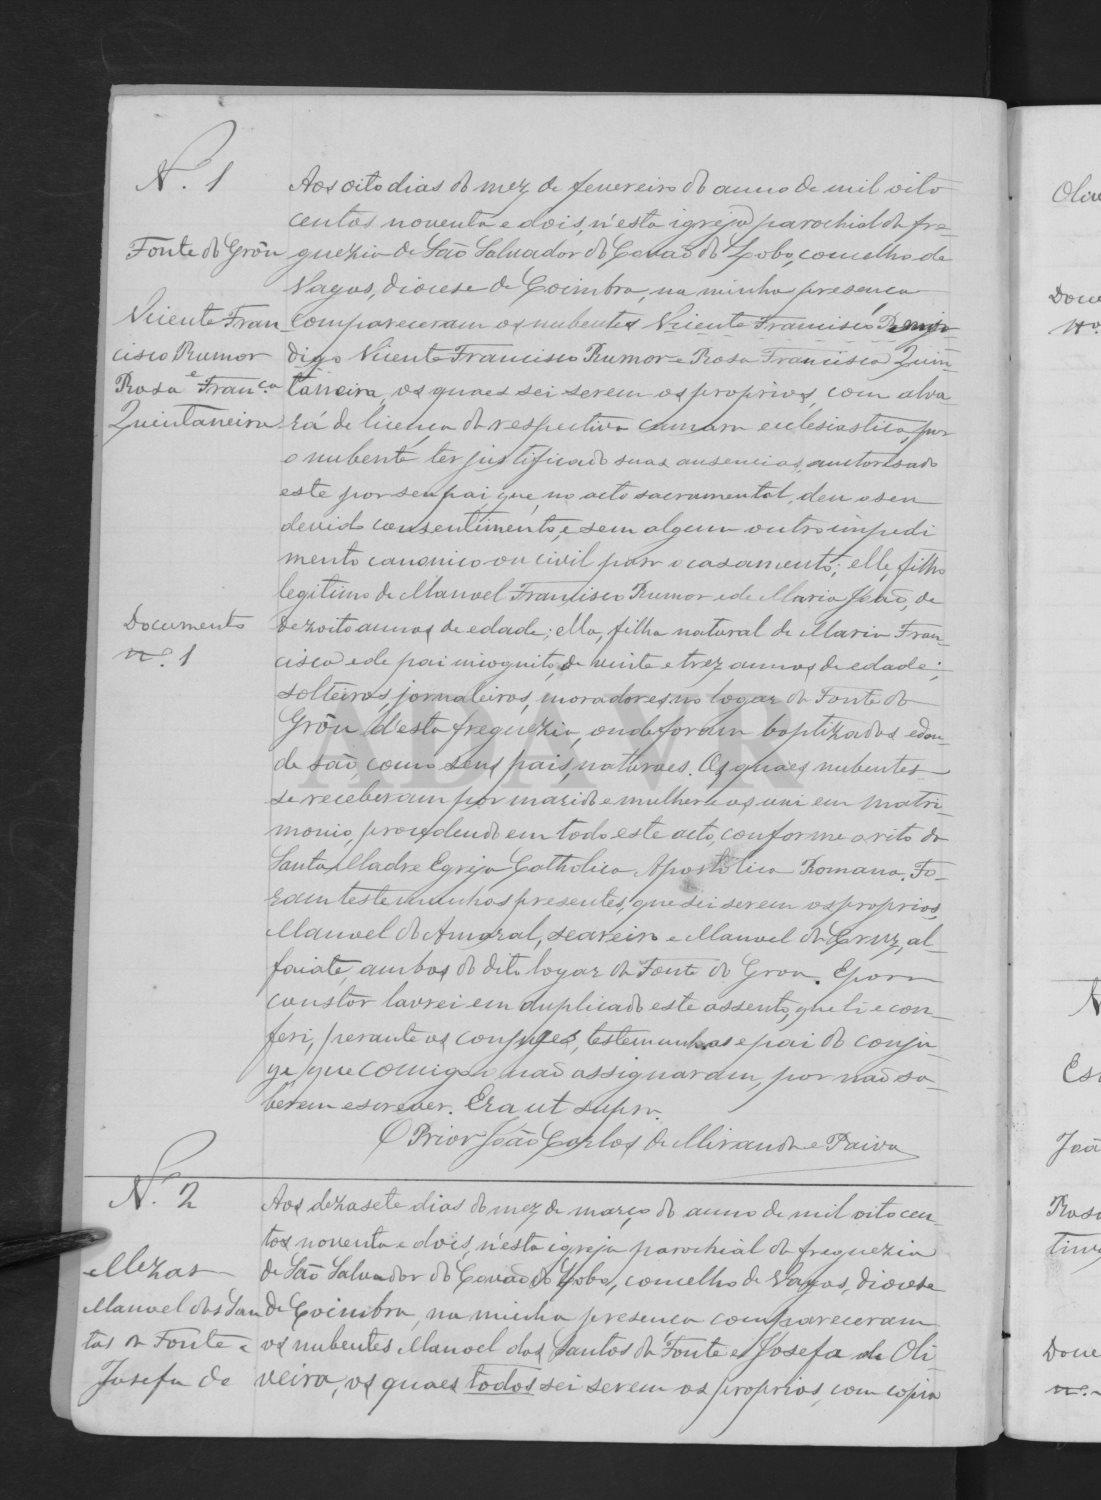 N.º 1
Aos oito dias do mez de fevereiro do anno de mil oito
centos noventa e dois, n'esta igreja parochial da fre-
Fonte do Grôu
guezia de São Salvador do Covão do Lobo, concelho de
Vagos, diocese de Coimbra, na minha presença
Vicente Fran-
compareceram os nubentes Vicente Francisco
cisco Rumor
digo Vicente Francisco Rumor e Rosa Francisca Quin-
Rosa e Franc.ca
taneira, os quaes sei serem os proprios, com alva-
Quintaneira
rá de licença da respectiva Camara ecclesiastica, por
o nubente ter justificado suas ausencias, auctorisado
este por seu pai, que, no acto sacramental, deu o seu
devido consentimento, e sem algum outro impedi
mento canonico ou civil para o casamento; elle, filho
legitimo de Manoel Francisco Rumor e de Maria João, de
Documento
dezoito annos de edade; ella, filha natural de Maria Fran-
n.º 1
cisca e de pai incognito, de vinte e trez annos de edade;
solteiros, jornaleiros, moradores no logar da Fonte do
Grôu d'esta freguezia, onde foram baptizados e don-
de são, como seus pais, naturaes. Os quaes nubentes
se receberam por marido e mulher e os uni em matri-
monio, procedendo em todo este acto, conforme o rito da
Santa Madre Egreja Catholica Apostolica Romana. Fo-
ram testemunhas presentes, que sei serem os proprios,
Manoel do Amaral, seareiro e Manoel da Cruz, al-
faiate, ambos do dito logar da Fonte do Grou. E para
constar lavrei em duplicado este assento, que li e con-
feri, perante os conjuges, testemunhas e pai do conju-
ge, que comigo não assignaram, por não sa-
berem escrever. Era ut supra.
O Prior João Carlos de Miranda e Paiva
N.º 2
Aos dezasete dias do mez de março do anno de mil oitocen-
tos noventa e dois, n'esta igreja parochial da freguezia
Mezas
de São Salvador do Covão do Lobo, concelho de Vagos, diocese
Manoel dos San
de Coimbra, na minha presença compareceram
tos da Fonte e
os nubentes Manoel dos Santos da Fonte e Josefa de Oli
Josefa de
veira, os quaes todos sei serem os proprios, com copia